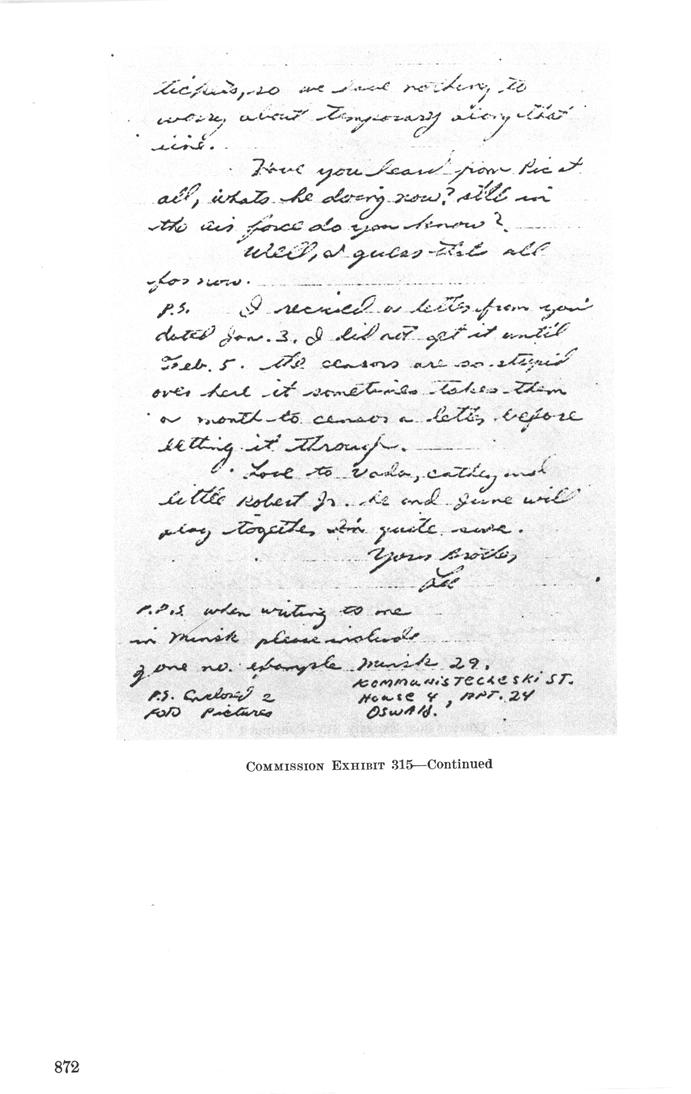 tickets, so we have nothing to
worry about temporarly along that
line.
Have you heard from Pic at
all, whats he doing now? still in
the air force do you know?
Well, I guess thats all
for now.
P.S. I recived a letter from you
dated Jan. 3, I did not get it until
Feb. 5. the censors are so stupid
over here it sometimes takes them
a month to censor a letter before
letting it through.
Love to Vada, cathy and
little Robert Jr. he and June will
play together I'm quite sure.
Your Brother
Lee
P.P.S. when writing to me
in Minsk please include
zone no. example Minsk 29,
KOMMUNISTECHESKI ST.
House 4, APT. 24
OSWALD.
P.S. Enclosed 2
FOTO Pictures
COMMISSION EXHIBIT 315—Continued
872